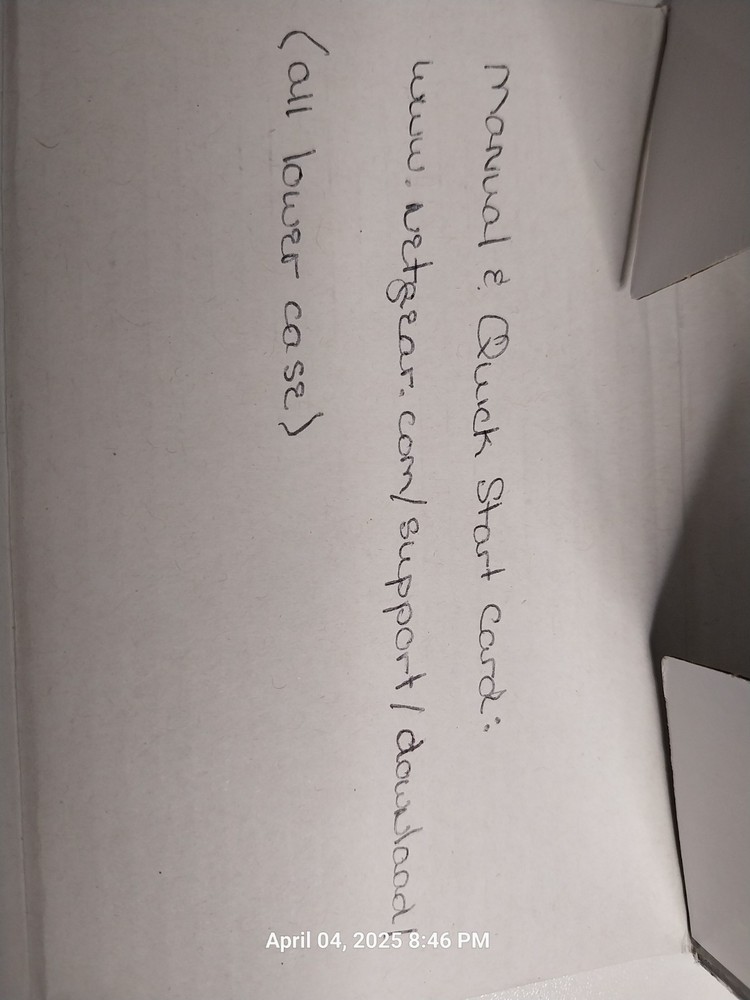 Manual & Quick Start Card:
www.netgear.com/support/download/
(all lower case)
April 04, 2025 8:46 PM